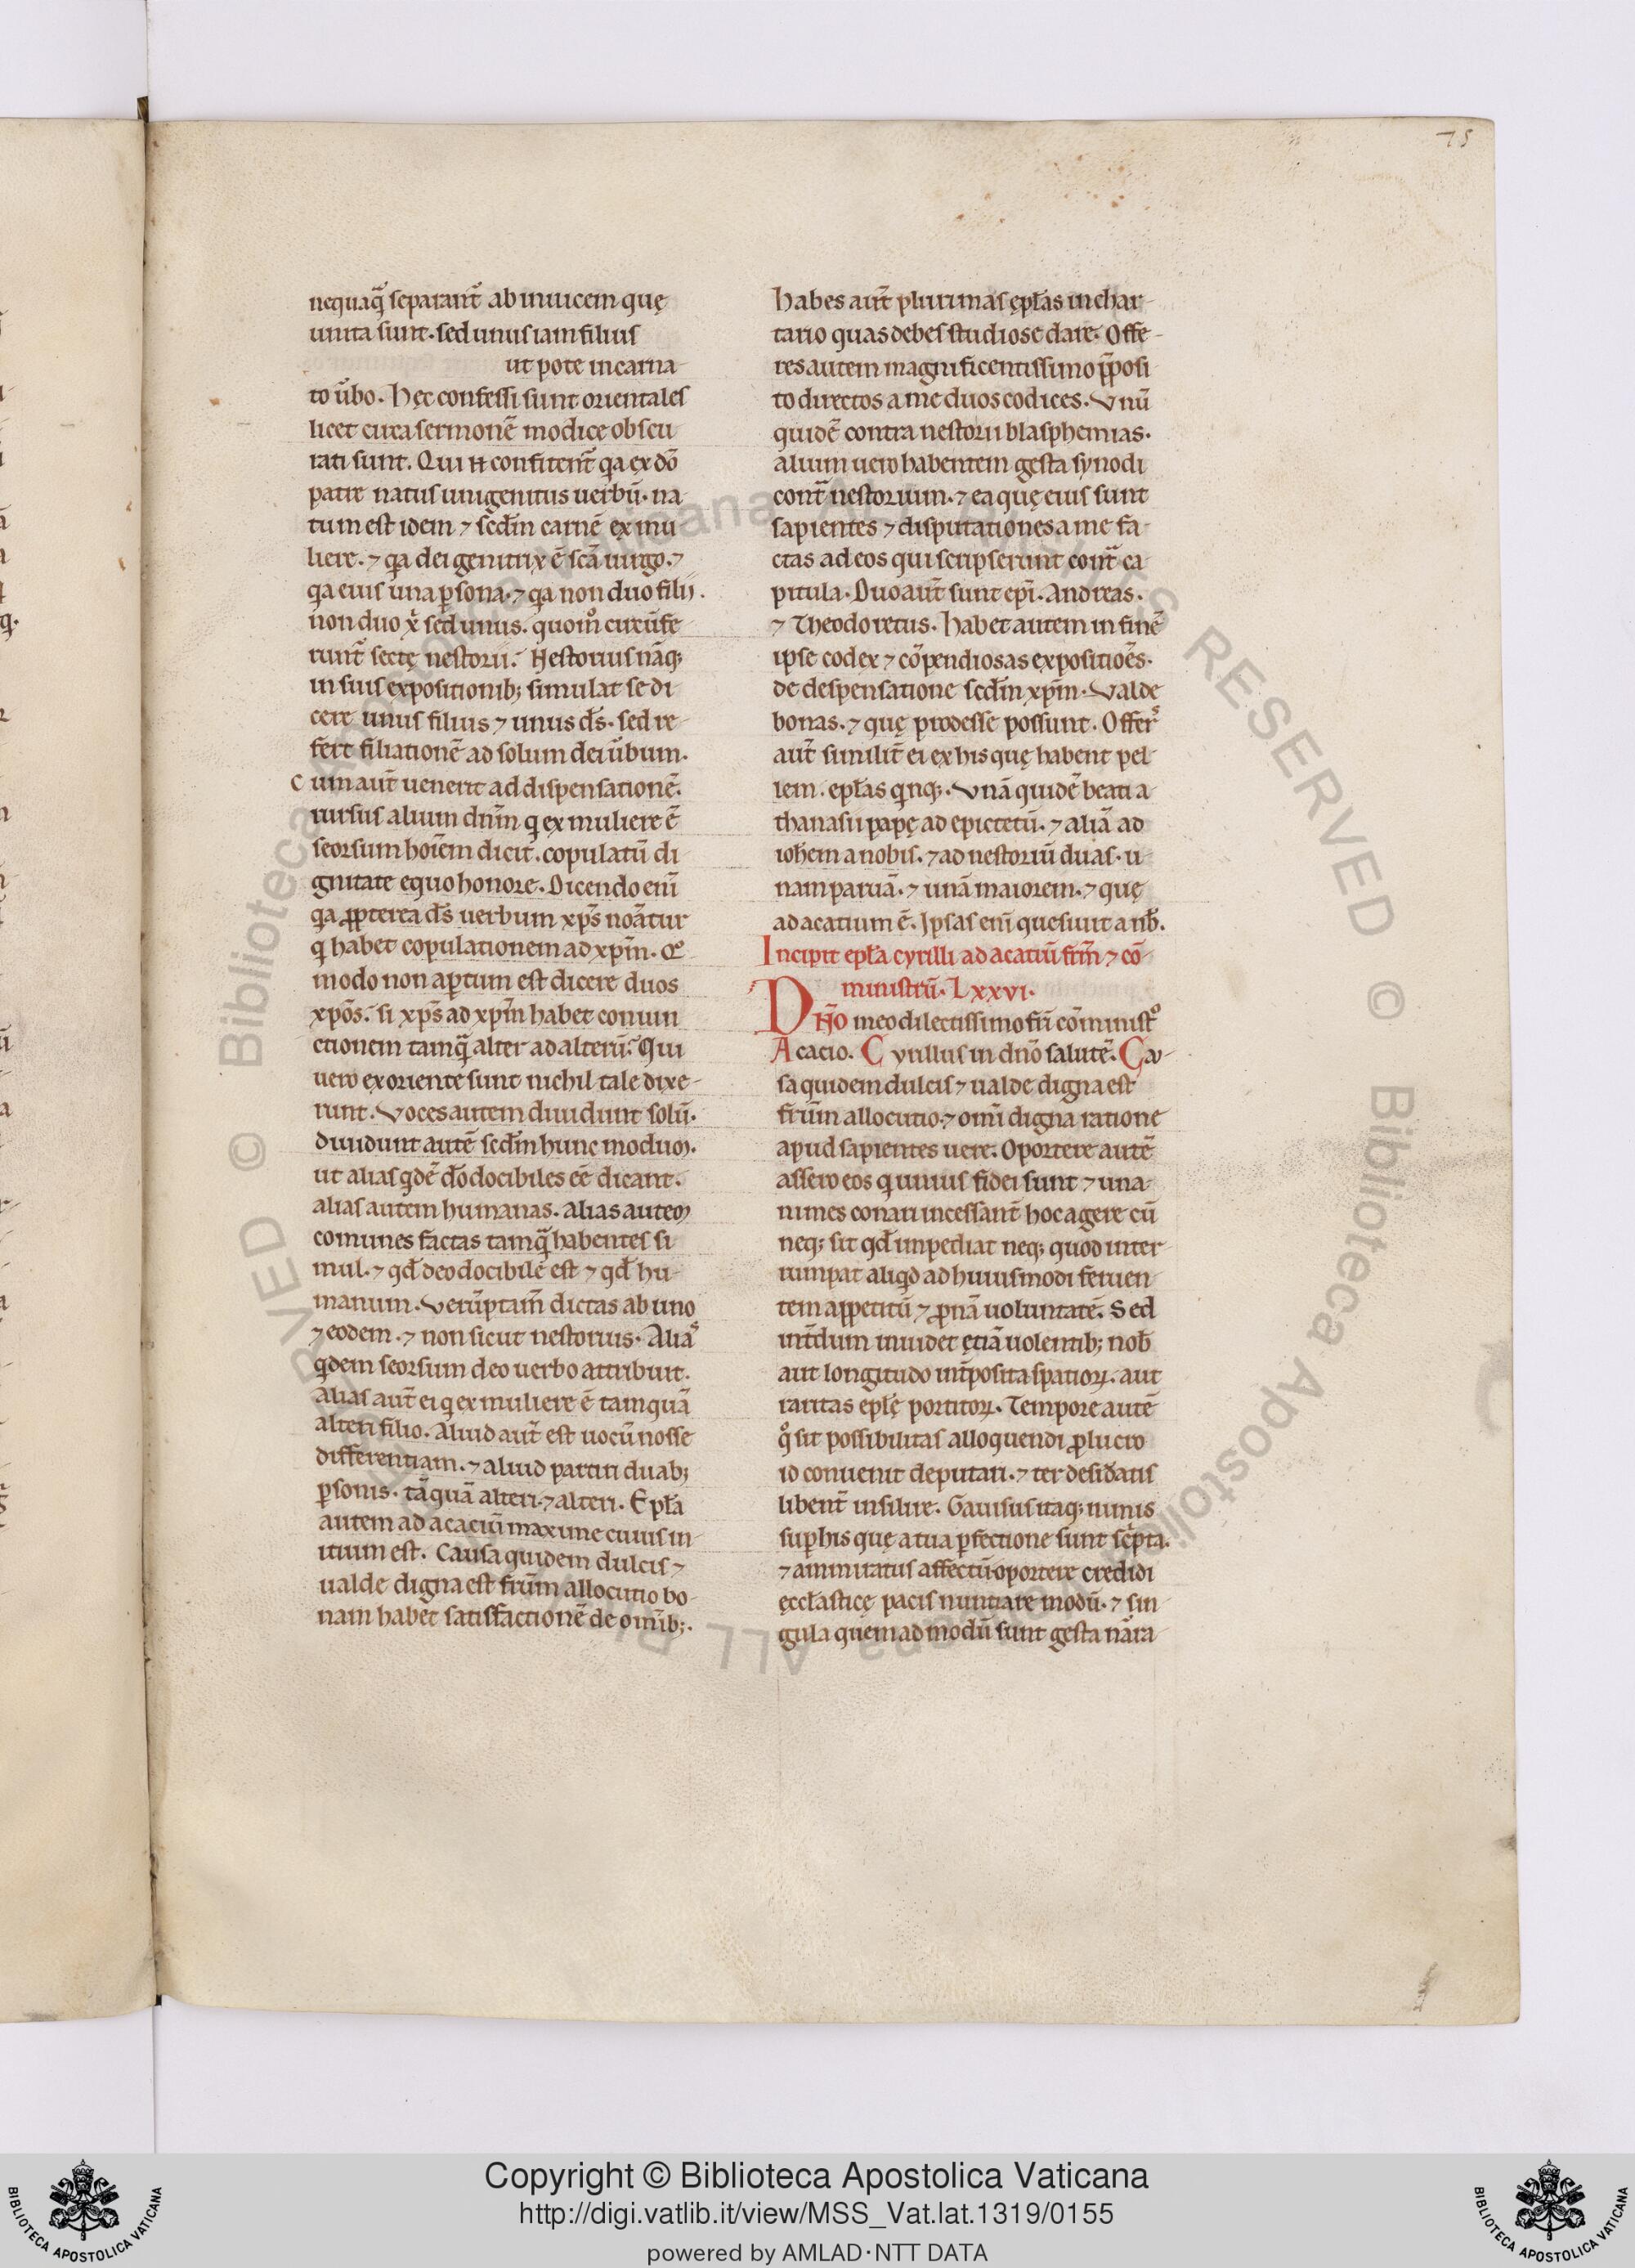 75
nequaq̃ separant̃ ab inuicem quę
unita sunt. sed unus iam filius
ut pote incarna
to ũbo. Hęc confessi sunt orientales
licet circa sermonẽ modice obscu
rati sunt. Qui confitent̃ qa ex dõ
patre natus unigenitus uerbũ. na
tum est idem ⁊ scdm̃ carnẽ ex mu
liere. ⁊ qa dei genitrix ẽ scã uirgo. ⁊
qa eius una psona. ⁊ qa non duo filii.
non duo x̃ sed unus. quom̊ circũfe
runt̃ sectę nestorii. Nestorius nãq;
in suis expositionib; simulat se di
cere unus filius ⁊ unus dс̃. sed re
fert filiationẽ ad solum dei ũbum.
Cum aut̃ uenerit ad dispensationẽ.
rursus alium dnm̃ q ex muliere ẽ
seorsum hoiẽm dicit. copulatũ di
gnitate equo honore. Dicendo enĩ
qa ꝓpterea ds̃ uerbum xps̃ noãtur
q habet copulationem ad xpm̃. Qº
modo non aptum est dicere duos
xpõs. si xps̃ ad xpm̃ habet coniun
ctionem tamq̃ alter ad alterũ. Qui
uero ex oriente sunt nichil tale dixe
runt. Voces autem diuidunt solũ.
diuidunt autẽ scdm̃ hunc modum.
ut alias qdẽ dõ docibiles eẽ dicant.
alias autem humanas. alias autem
comunes factas tamq̃ habentes si
mul. ⁊ qd̃ deo docibile est ⁊ qd̃ hu
manum. Verũptam̃ dictas ab uno
⁊ eodem. ⁊ non sicut nestorius. Aliaˢ
qdem seorsum deo uerbo attribuit.
alias aut̃ ei q ex muliere ẽ tamquã
alteri filio. Aliud aut̃ est uocũ nosse
differentiam. ⁊ aliud partiri duab;
psonis. tãquã alteri. ⁊ alteri. Epl̃a
autem ad acaciũ maxime cuius in
itium est. Causa quidem dulcis ⁊
ualde digna est frũm allocutio bo
nam habet satisfactionẽ de omĩb;.
Habes aut̃ plurimas ępl̃as in char
tario quas debes studiose dare. Offe
res autem magnificentissimo p̃posi
to directos a me duos codices. Vnũ
quidẽ contra nestorii blasphemias.
alium uero habentem gesta synodi
cont̃ nestorium. ⁊ ea quę eius sunt
sapientes ⁊ disputationes a me fa
ctas ad eos qui scripserunt cont̃ ca
pitula. Duo aut̃ sunt epĩ. Andreas.
⁊ Theodoretus. Habet autem in finẽ
ipse codex ⁊ cõpendiosas expositioẽs.
de despensatione scdm̃ xpm̃. Valde
bonas. ⁊ quę prodesse possunt. Offerˢ
aut̃ similit̃ ei ex his quę habent pel
lem. epl̃as qnq;. Vnã quidẽ beati a
thanasii papę ad epictetũ. ⁊ aliã ad
ioh̃em a nobis. ⁊ ad nestoriũ duas. u
nam paruã. ⁊ unã maiorem. ⁊ quę
ad acatium ẽ. Ipsas enĩ quesiuit a nb̃.
Incipit epl̃a cyrilli ad acatiũ frm̃ ⁊ cõ
ministrũ. Lxxvi.
DÑO meo dilectissimo fri cõministº
Acacio. Cyrillus in dnõ salutẽ. Cau
sa quidem dulcis ⁊ ualde digna est
frũm allocutio. ⁊ omĩ digna ratione
apud sapientes uere. Oportere autẽ
assero eos q unius fidei sunt ⁊ una
nimes conari incessant̃ hoc agere cũ
neq; sit qd̃ impediat neq; quod inter
rumpat aliqd ad huiusmodi feruen
tem appetitũ ⁊ ꝓnã uoluntatẽ. Sed
int̃dum inuidet ętiã uolentib; nob̃
aut longitudo int̃posita spatioꝝ. aut
raritas epl̃ę portitoꝝ. Tempore autẽ
qº sit possibilitas alloquendi ꝓ lucro
id conuenit deputari. ⁊ ter desidatis
libent̃ insilire. Gauisus itaq; nimis
sup his quę a tua pfectione sunt scpta.
⁊ ammiratus affectũ oportere credidi
ęccl̃asticę pacis nuntiare modũ. ⁊ sin
gula quemadmodũ sunt gesta narra
Copyright © Biblioteca Apostolica Vaticana
http://digi.vatlib.it/view/MSS_Vat.lat.1319/0155
powered by AMLAD·NTT DATA
BIBLIOTECA APOSTOLICA VATICANA
BIBLIOTECA APOSTOLICA VATICANA